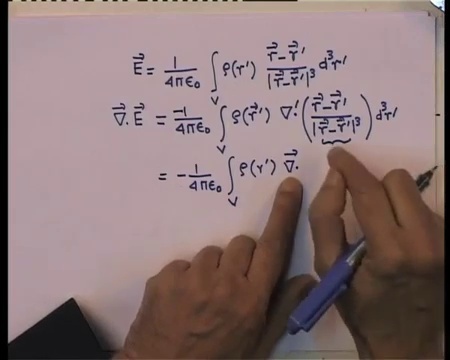 \vec{E} = \frac{1}{4\pi\epsilon_0} \int_V \rho(r') \frac{\vec{r}-\vec{r}'}{|\vec{r}-\vec{r}'|^3} d^3r'
\vec{\nabla}\cdot\vec{E} = \frac{-1}{4\pi\epsilon_0} \int_V \rho(\vec{r}') \nabla'\cdot\left(\frac{\vec{r}-\vec{r}'}{|\vec{r}-\vec{r}'|^3}\right) d^3r'
= -\frac{1}{4\pi\epsilon_0} \int_V \rho(r') \vec{\nabla}\cdot